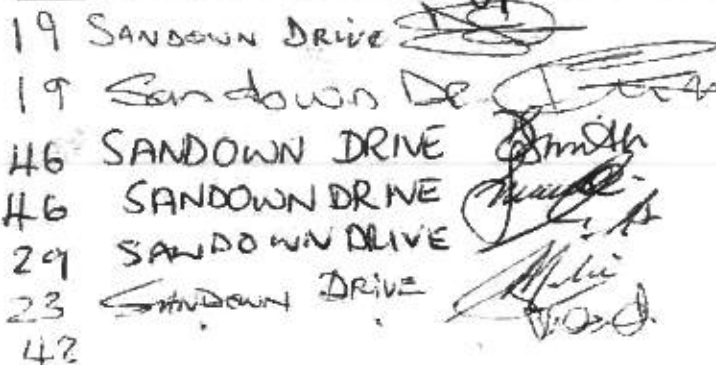 19 SANDOWN DRIVE
19 Sandown Dr
46 SANDOWN DRIVE Smith
46 SANDOWN DRIVE
29 SANDOWN DRIVE
23 SANDOWN DRIVE
42